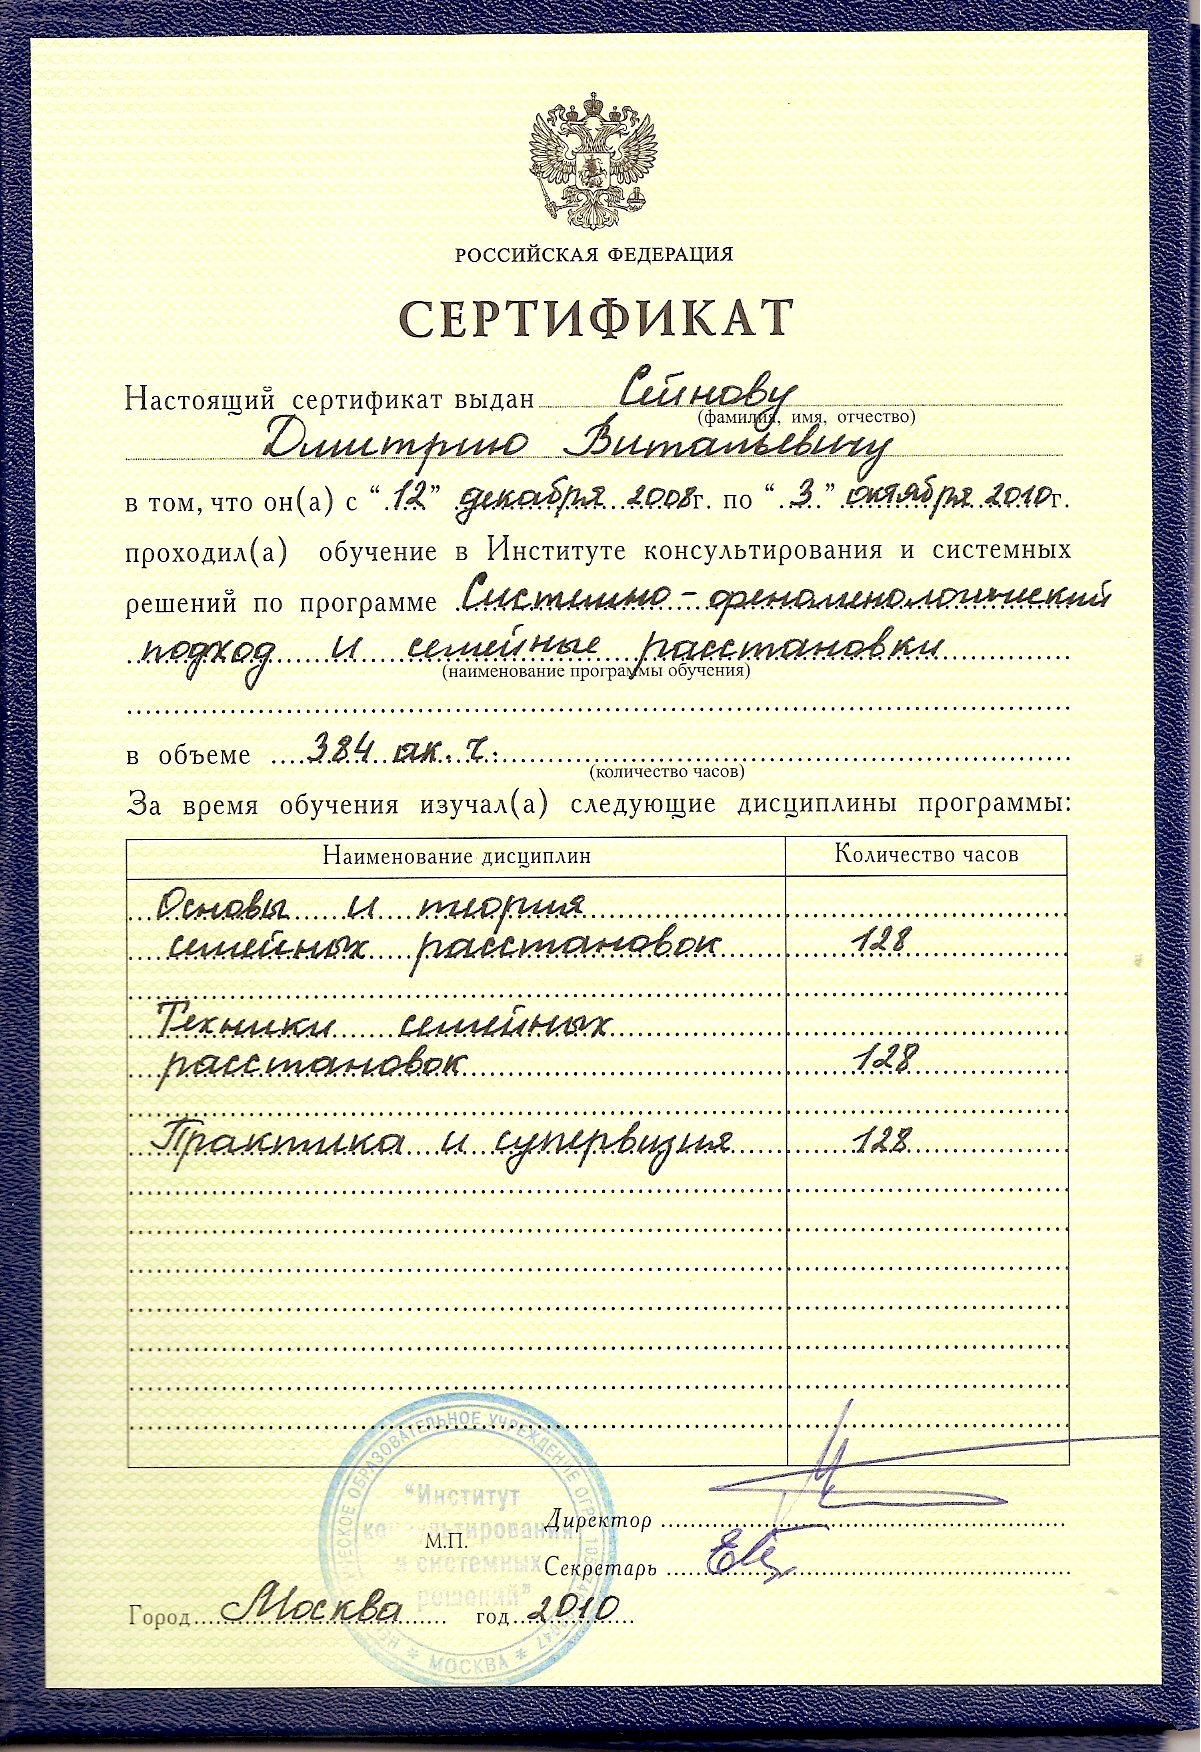 РОССИЙСКАЯ ФЕДЕРАЦИЯ
СЕРТИФИКАТ
Настоящий сертификат выдан Сейнову
(фамилия, имя, отчество)
Дмитрию Витальевичу
в том, что он(а) с “12” декабря 2008г. по “3” октября 2010г.
проходил(а) обучение в Институте консультирования и системных
решений по программе Системно-феноменологический
подход и семейные расстановки
(наименование программы обучения)
в объеме 384 ак. ч.
(количество часов)
За время обучения изучал(а) следующие дисциплины программы:
Наименование дисциплин Количество часов
Основы и теория
семейных расстановок 128
Техники семейных
расстановок 128
Практика и супервизия 128
ОБРАЗОВАТЕЛЬНОЕ УЧРЕЖДЕНИЕ
“Институт
консультирования
и системных
решений”
* МОСКВА *
Директор
М.П.
Секретарь
Город Москва год 2010